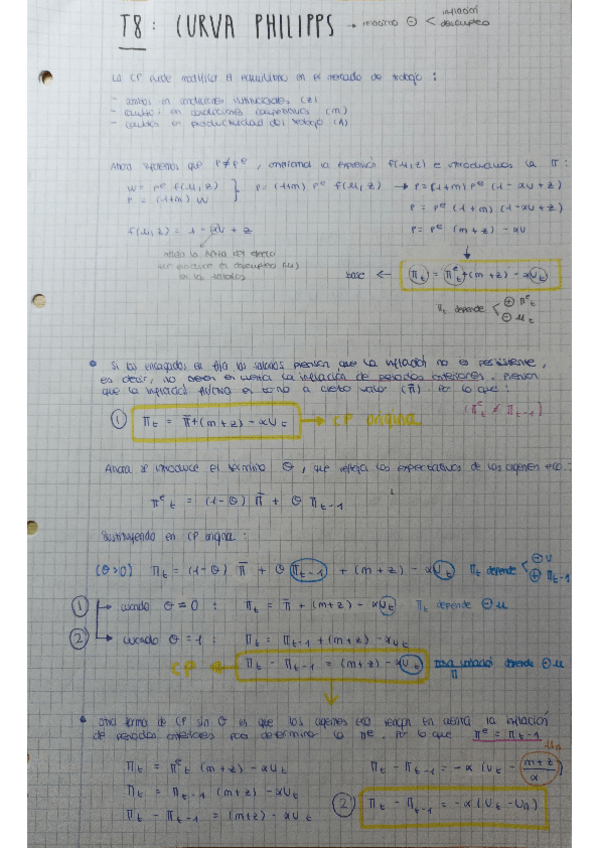 T8: CURVA PHILIPPS → relación ⊖ < inflación desempleo
La CP puede modificar el equilibrio en el mercado de trabajo :
- cambios en condiciones institucionales (z)
- cambios en condiciones competitivas (m)
- cambios en productividad del trabajo (A)
Ahora suponemos que P≠Pᵉ, la expresión f(μ,z) e introducimos la π :
W = Pᵉ f(μ,z) } P = (1+m) Pᵉ f(μ,z) → P = (1+m) Pᵉ (1-αU+z)
P = (1+m) W
P = Pᵉ (1+m) (1-αU+z)
f(μ,z) = 1 - αU + z
P = Pᵉ (m+z) - αU
refleja la fuerza del efecto
que produce el desempleo (μ)
en los salarios
base ← πt = πᵉt + (m+z) - αUt
πt depende < ⊕ πᵉt ⊖ μt
• Si los encargados en fijar los salarios piensan que la inflación no es persistente,
es decir, no tienen en cuenta la inflación de periodos anteriores. Piensan
que la inflación en torno a cierto valor (π̄). Por lo que :
① πt = π̄ + (m+z) - αUt → CP original
(πᵉt ≠ πt-1)
Ahora se introduce el término θ, que refleja las expectativas de los agentes eco.:
πᵉt = (1-θ) π̄ + θ πt-1
Sustituyendo en CP original :
(θ>0) πt = (1-θ) π̄ + θ πt-1 + (m+z) - αUt πt depende < ⊖ U ⊕ πt-1
① → cuando θ=0 : πt = π̄ + (m+z) - αUt πt depende ⊖ μ
② → cuando θ=1 : πt = πt-1 + (m+z) - αUt
CP ← πt - πt-1 = (m+z) - αUt depende ⊖ μ
π
• Otra forma de CP sin θ es que los agentes eco tengan en cuenta la inflación
de periodos anteriores para determinar la πᵉ. Por lo que πᵉt = πt-1
πt = πᵉt (m+z) - αUt
πt = πt-1 (m+z) - αUt
πt - πt-1 = (m+z) - αUt
πt - πt-1 = -α (Ut - (m+z)/α) μn
② πt - πt-1 = -α (Ut - Un)